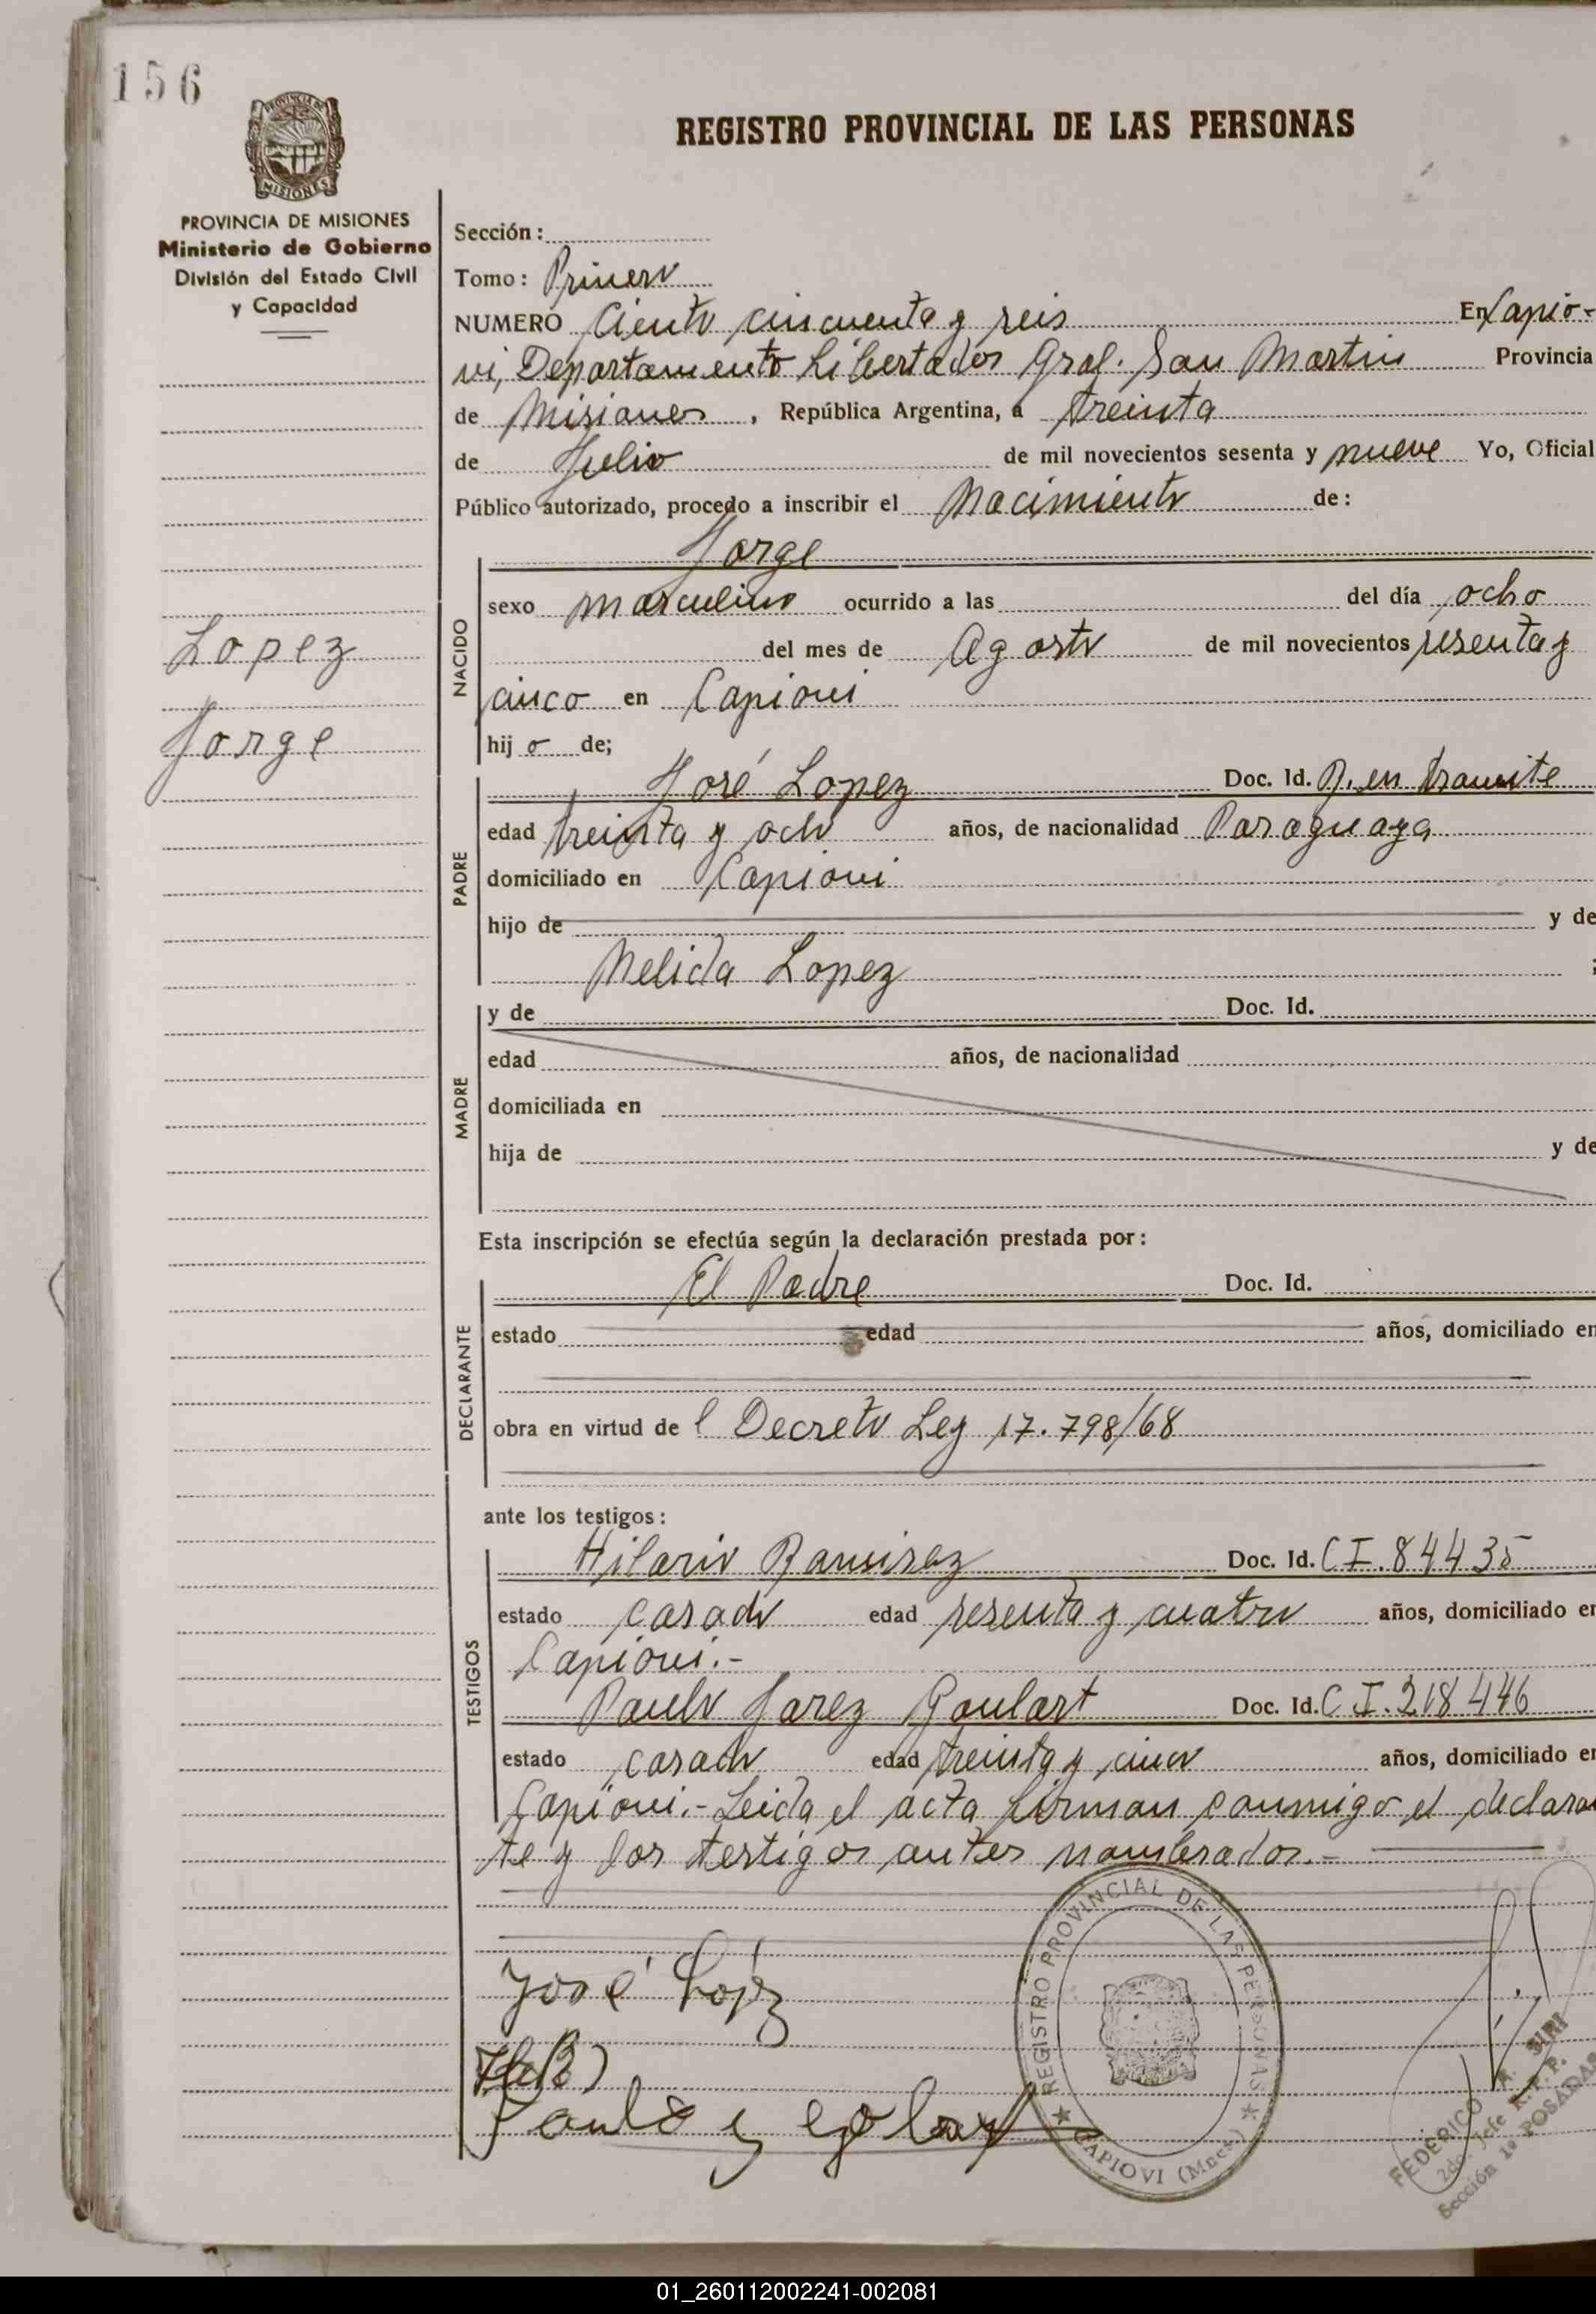 156
REGISTRO PROVINCIAL DE LAS PERSONAS
PROVINCIA DE MISIONES
Ministerio de Gobierno
División del Estado Civil
y Capacidad
Sección:
Tomo: Primero
NUMERO Ciento cincuenta y seis En Capio-
vi, Departamento Libertador Gral. San Martin Provincia
de Misiones, República Argentina, a treinta
de Julio de mil novecientos sesenta y nueve Yo, Oficial
Público autorizado, procedo a inscribir el Nacimiento de:
Jorge
NACIDO
sexo masculino ocurrido a las del día ocho
del mes de Agosto de mil novecientos sesenta y
cinco en Capiovi
hijo de;
Lopez
Jorge
PADRE
José Lopez Doc. Id. R. en tramite
edad treinta y ocho años, de nacionalidad Paraguaya
domiciliado en Capiovi
hijo de y de
Nelida Lopez ;
MADRE
y de Doc. Id.
edad años, de nacionalidad
domiciliada en
hija de y de
Esta inscripción se efectúa según la declaración prestada por:
DECLARANTE
El Padre Doc. Id.
estado edad años, domiciliado en
obra en virtud del Decreto Ley 17.798/68
ante los testigos:
TESTIGOS
Hilario Ramirez Doc. Id. C I. 84435
estado casado edad sesenta y cuatro años, domiciliado en
Capiovi.-
Paulo Jarez Goulart Doc. Id. C I. 218446
estado casado edad treinta y cinco años, domiciliado en
Capiovi.- Leida el acta firman conmigo el declaran
te y los testigos antes nombrados.-
José López
REGISTRO PROVINCIAL DE LAS PERSONAS
CAPIOVI (Mnes.)
FEDERICO A. SIRI
2do. Jefe R. P. P.
Sección 1º POSADAS
01_260112002241-002081